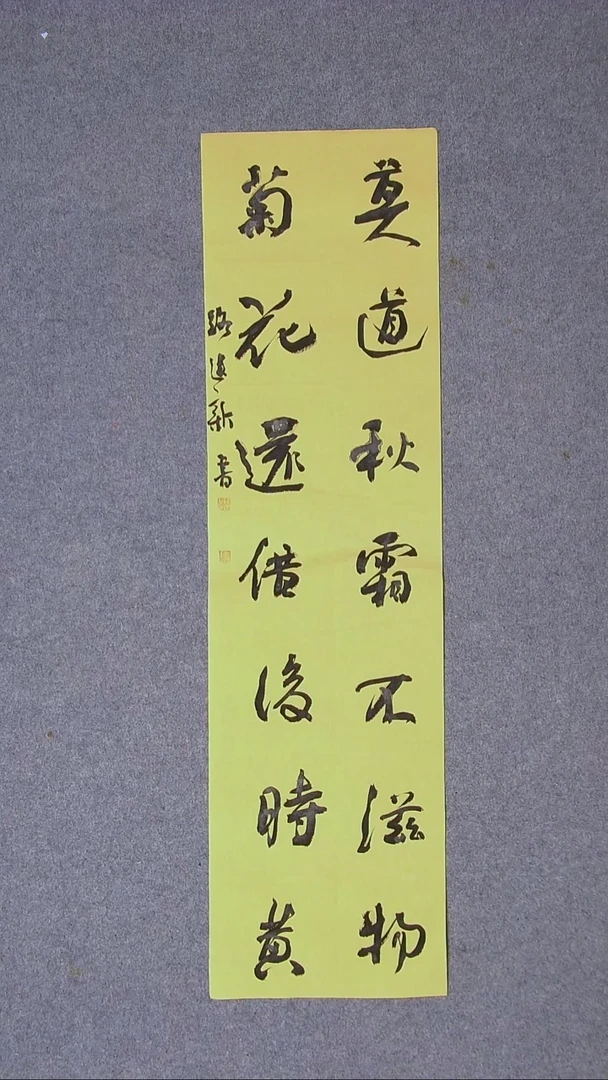 莫道秋霜不滋物
菊花還借後時黄
路進新書